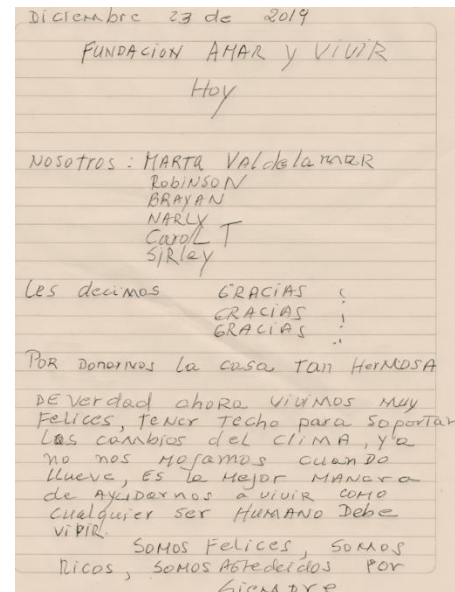 Diciembre 23 de 2019
FUNDACION AMAR Y VIVIR
Hoy
NOSOTROS: MARTA VALdelamar
RobiNSON
BRAYAN
NARLY
CaroL T
SIRLey
Les decimos GRACIAS
GRACIAS
GRACIAS
POR DonarNos La casa Tan HerMOSA
DE Verdad ahoRa ViViMos MUy
Felices, Tener Techo para SoporTar
Los cambios del CLiMA, ya
no nos Mojamos cuanDo
LLueve, ES la Mejor MANera
de AyuDarnos a ViVir COMO
CualquIer Ser HUMANO Debe
ViViR.
SOMOS Felices, SOMOS
Ricos, SOMOS AGredecidos POR
Siempre